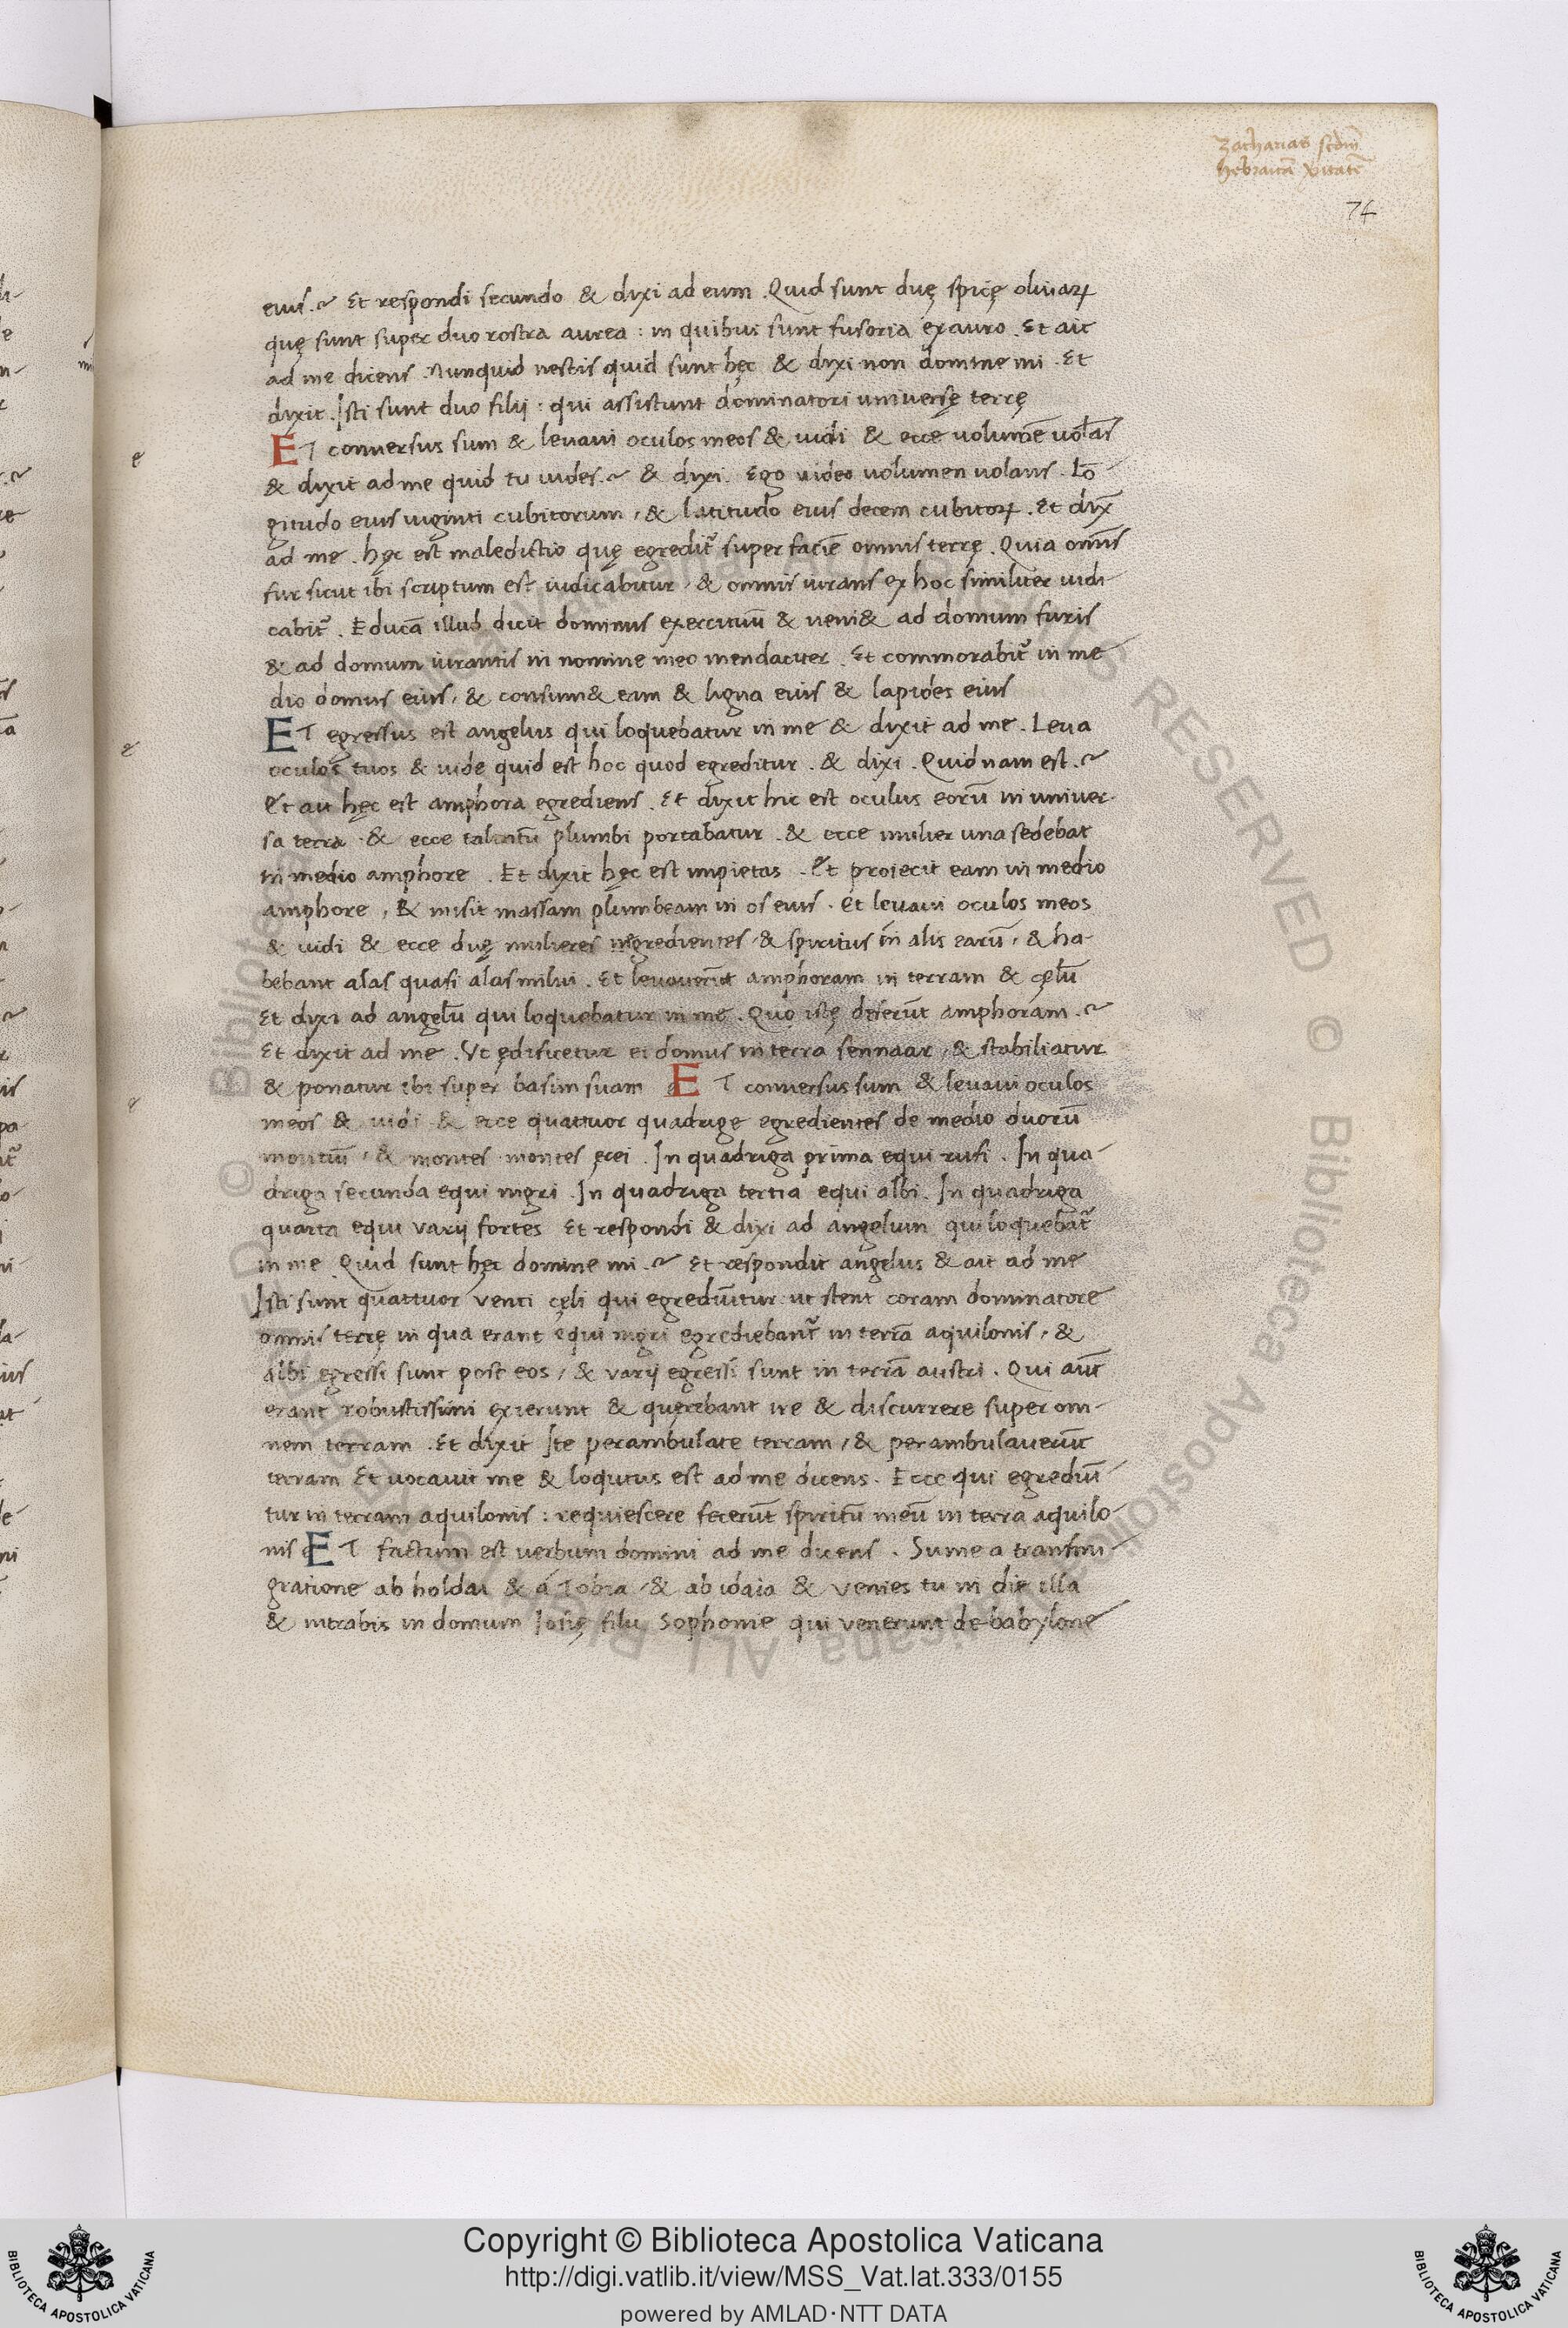 Zacharias scdm̄
hebraicā v̄itatē
74
eius.~ Et respondi secundo & dixi ad eum. Quid sunt duę spicę olivaꝝ
quę sunt super duo rostra aurea : in quibus sunt fusoria ex auro. Et ait
ad me dicens. Nunquid nescis quid sunt hęc & dixi non domine mi. Et
dixit. Isti sunt duo filij : qui assistunt dominatori universę terrę
ET conversus sum & levavi oculos meos & vidi & ecce volumē volās
& dixit ad me quid tu vides.~ & dixi. Ego video volumen volans. Lō
gitudo eius viginti cubitorum, & latitudo eius decem cubitoꝝ. Et dix̄
ad me. hęc est maledictio quę egredit̄ super faciē omnis terrę. Quia om̄is
fur sicut ibi scriptum est iudicabitur, & omnis iurans ex hoc similiter iudi
cabit̄. Educā illud dicit dominus exercituū & veni& ad domum furis
& ad domum iurantis in nomine meo mendaciter. Et commorabit̄ in me
dio domus eius, & consum& eam & ligna eius & lapides eius
ET egressus est angelus qui loquebatur in me & dixit ad me. Leva
oculos tuos & vide quid est hoc quod egreditur. & dixi. Quidnam est.~
Et ait hęc est amphora egrediens. Et dixit hic est oculus eorū in univer-
sa terra & ecce talentū plumbi portabatur. & ecce mulier una sedebat
in medio amphore. Et dixit hęc est impietas. Et proiecit eam in medio
amphore, & misit massam plumbeam in os eius. Et levavi oculos meos
& vidi & ecce duę mulieres ingredientes, & spiritus in alis earū, & ha-
bebant alas quasi alas milvi. Et levaverūt amphoram in terram & cęlū
Et dixi ad angelū qui loquebatur in me. Quo istę deferūt amphoram.~
Et dixit ad me. Ut ędificetur ei domus in terra sennaar, & stabiliatur
& ponatur ibi super basim suam ET conversus sum & levavi oculos
meos & vidi & ecce quattuor quadrige egredientes de medio duorū
montiū, & montes montes ęrei. In quadriga prima equi rufi. In qua-
driga secunda equi nigri. In quadriga tertia equi albi. In quadriga
quarta equi varij fortes Et respondi & dixi ad angelum qui loquebat̄
in me Quid sunt hęc domine mi.~ Et respondit angelus & ait ad me
Isti sunt quattuor venti cęli qui egrediūtur ut stent coram dominatore
omnis terrę in qua erant equi nigri egrediebant̄ in terrā aquilonis, &
albi egressi sunt post eos, & varij egressi sunt in terrā austri. Qui aūt
erant robustissimi exierunt & quęrebant ire & discurrere super om-
nem terram. Et dixit Ite perambulate terram, & perambulaverūt
terram Et vocavit me & loqutus est ad me dicens. Ecce qui egrediū-
tur in terram aquilonis : requiescere fecerūt spiritū meū in terra aquilo-
nis ET factum est verbum domini ad me dicens. Sume a transmi-
gratione ab holdai & a Tobia, & ab idaia & venies tu in die illa
& intrabis in domum Iosię filii Sophonie qui venerunt de babylone
e
e
e
Copyright © Biblioteca Apostolica Vaticana
http://digi.vatlib.it/view/MSS_Vat.lat.333/0155
powered by AMLAD·NTT DATA
BIBLIOTECA APOSTOLICA VATICANA
BIBLIOTECA APOSTOLICA VATICANA